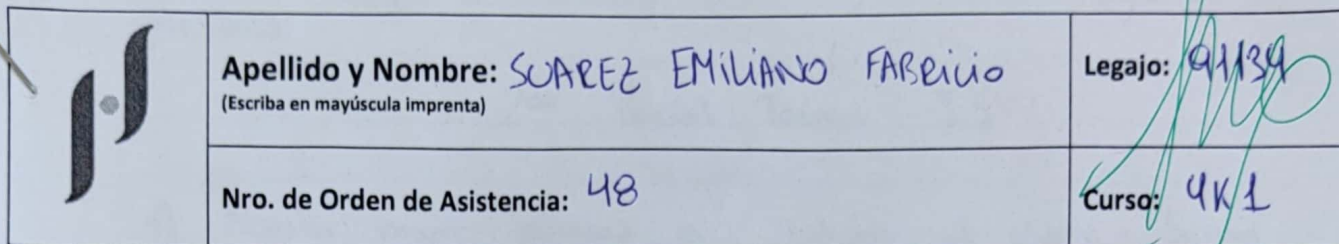 Apellido y Nombre: SUAREZ EMILIANO FABRICIO
(Escriba en mayúscula imprenta)
Legajo: 91139
Nro. de Orden de Asistencia: 48
Curso: 4K1